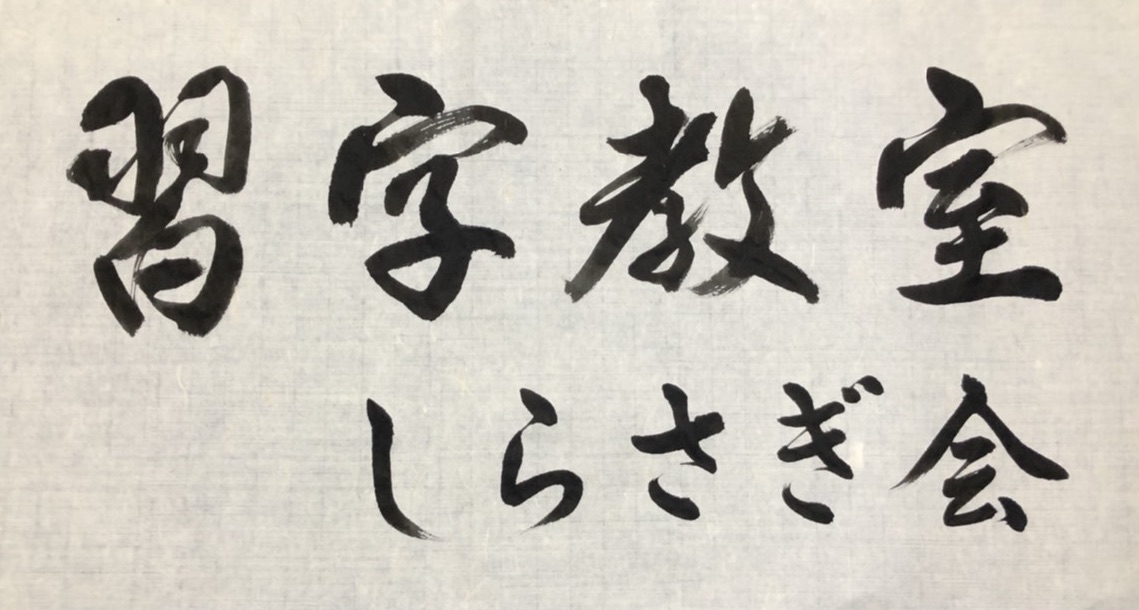 習字教室
しらさぎ会